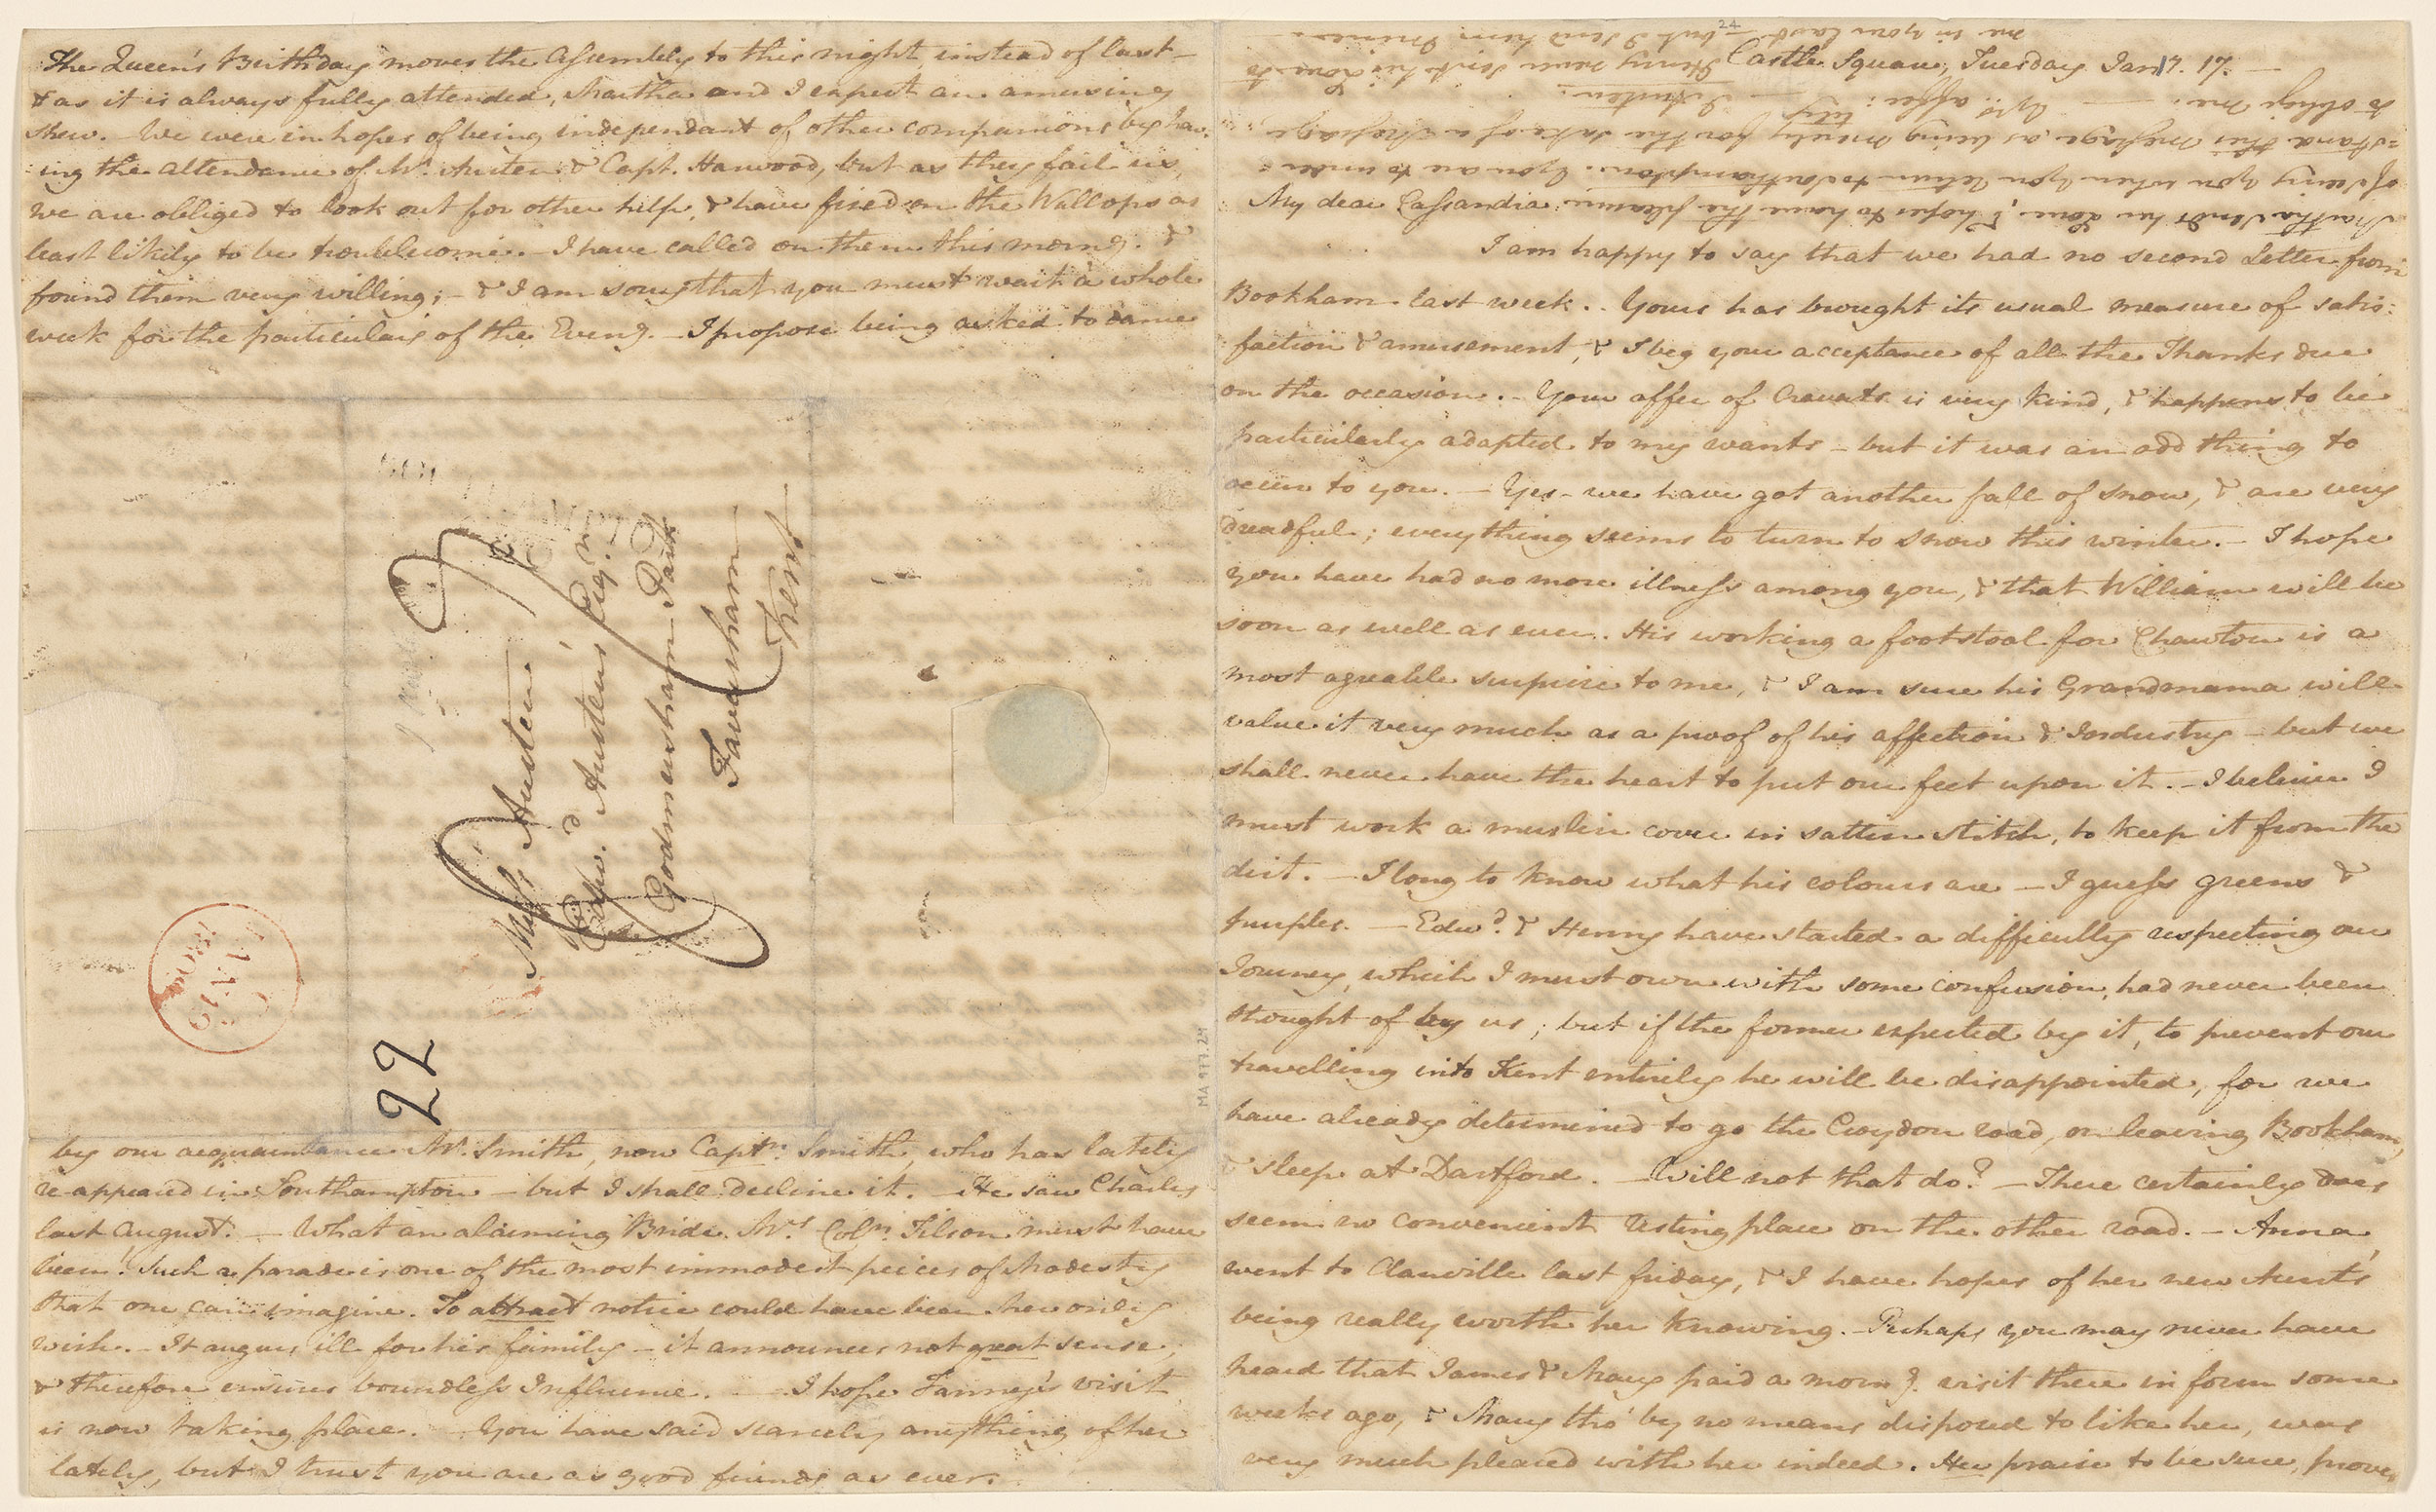 Castle Square, Tuesday Jan:ry 17.
My dear Cassandra
I am happy to say that we had no second Letter from
Bookham last week. Yours has brought its usual measure of satis:
faction & amusement, & I beg your acceptance of all the Thanks due
on the occasion. - Your offer of Cravats is very kind, & happens to be
particularly adapted to my wants - but it was an odd thing to
occur to you. - Yes - we have got another fall of snow, & are very
dreadful; everything seems to turn to snow this winter. - I hope
you have had no more illness among you, & that William will be
soon as well as ever. His working a footstool for Chawton is a
most agreable surprise to me, & I am sure his Grandmama will
value it very much as a proof of his affection & Industry - but we
shall never have the heart to put our feet upon it. - I beleive I
must work a muslin cover in sattin stitch, to keep it from the
dirt. - I long to know what his colours are - I guess greens &
purples. - Edw:d & Henry have started a difficulty respecting our
Journey, which I must own with some confusion, had never been
thought of by us; but if the former expected by it, to prevent our
travelling into Kent entirely he will be disappointed, for we
have already determined to go the Croydon road, on leaving Bookham,
& sleep at Dartford. - Will not that do? - There certainly does
seem no convenient resting place on the other road. - Anna
went to Clanville last friday, & I have hopes of her new Aunt's
being really worth her knowing. - Perhaps you may never have
heard that James & Mary paid a morn:g visit there in form some
weeks ago, & Mary tho' by no means disposed to like her, was
very much pleased with her indeed. Her praise to be sure, proves
The Queen's Birthday moves the Assembly to this night instead of last -
& as it is always fully attended, Martha and I expect an amusing
shew. - We were in hopes of being independant of other companions by hav:
ing the attendance of Mr. Austen & Capt. Harwood, but as they fail us,
we are obliged to look out for other help, & have fixed on the Wallops as
least likely to be troublesome. - I have called on them this morn:g &
found them very willing; - & I am sorry that you must wait a whole
week for the particulars of the Even:g. - I propose being asked to dance
by our acquaintance Mr. Smith, now Capt:n Smith, who has lately
re-appeared in Southampton - but I shall decline it. - He saw Charles
last August. - What an alarming Bride Mrs. Col:n Tilson must have
been! Such a parade is one of the most immodest peices of Modesty
that one can imagine. To attract notice could have been her only
wish. - It augurs ill for his family - it announces not great sense,
& therefore ensures boundless Influence. - I hope Fanny's visit
is now taking place. - You have said scarcely anything of her
lately, but I trust you are as good friends as ever.
Martha sends her Love, & hopes to have the pleasure
of seeing you when you return to Southampton. You are to under:
=stand this message, as being merely for the sake of a Message,
to oblige me. - Yrs. affec:tely
J. Austen.
Henry never sent his Love to
me in your last - but I send him Mine. -
Miss Austen
Edw:d Austen's Esq:r
Godmersham Park
Faversham
Kent
22
JAN 19
24
MA 977.24